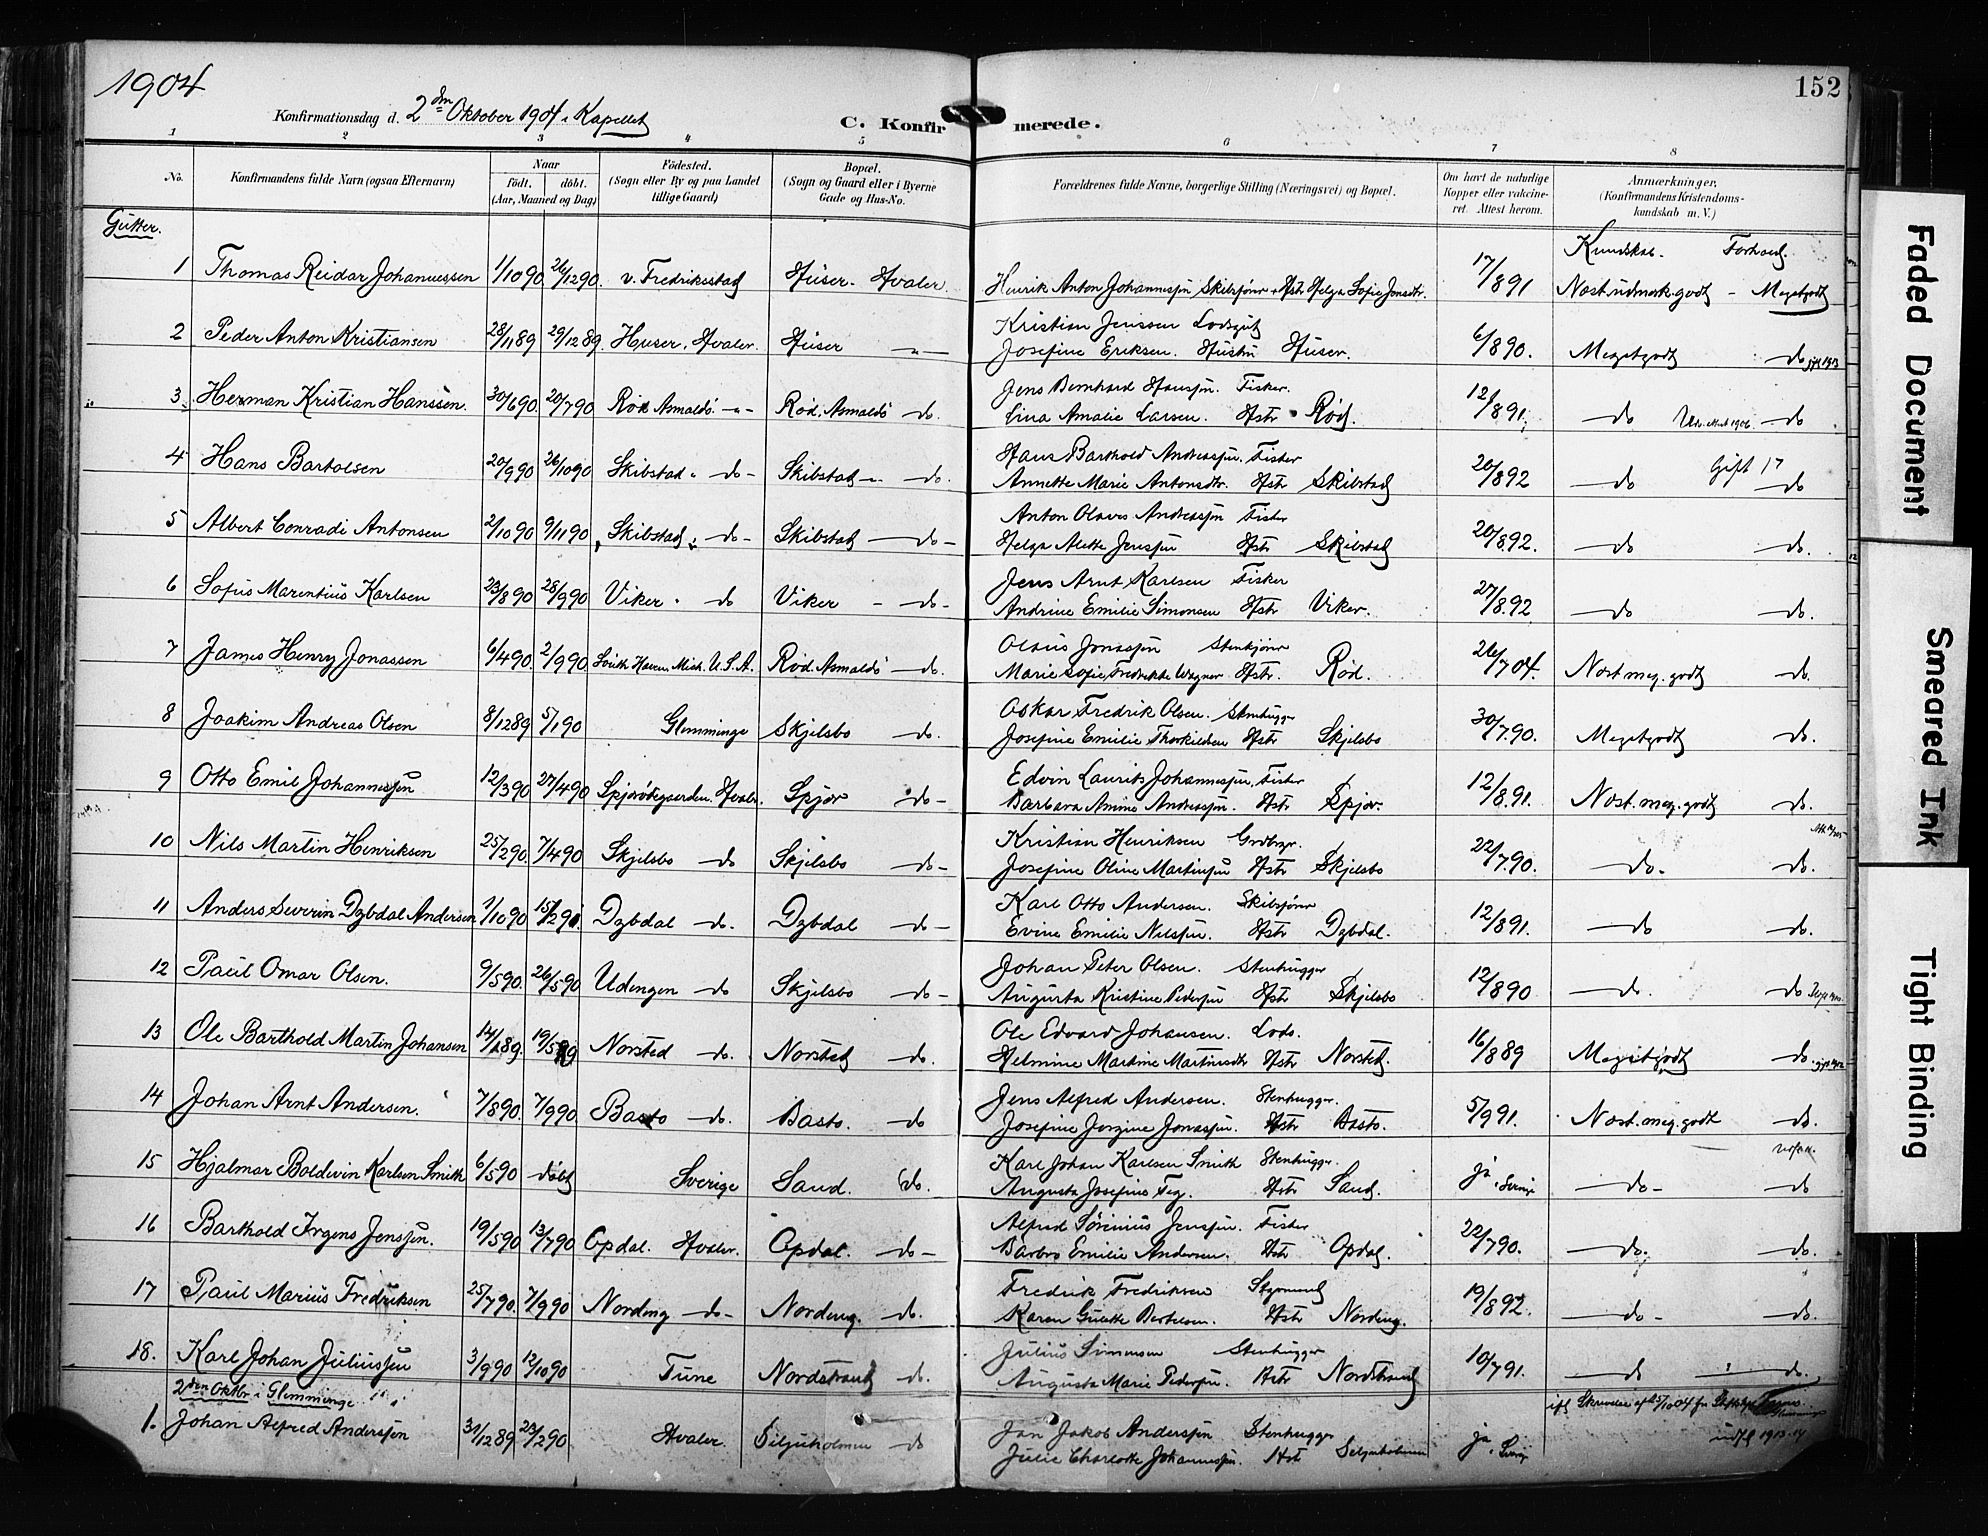 1904
152
Konfirmationsdag d. 2den Oktober 1904 i Kapellet
C. Konfirmerede.
1 2 3 4 5 6 7 8
No. Konfirmandens fulde Navn (ogsaa Efternavn) Naar födt. döbt. (Aar, Maaned og Dag) Födested. (Sogn eller By og paa Landet tillige Gaard) Bopæl. (Sogn og Gaard eller i Byerne Gade og Hus-No. Forældrenes fulde Navne, borgerlige Stilling (Næringsvei) og Bopæl. Om havt de naturlige Kopper eller vakcineret. Attest herom. Anmærkninger. (Konfirmandens Kristendomskundskab m. V.)
Gutter.
Kundskab. Forhold.
1 Thomas Reidar Johannessen 1/10 90 26/12 90 v. Fredriksstad Huser. Hvaler. Henrik Anton Johannessen Skibsfører Hstr Helga Sofie Jonsdtr. 17/8 91 Næst udmerk. godt - Megetgodt
2 Peder Anton Kristiansen 28/11 89 29/12 89 Huser. Hvaler. Huser -"- Kristian Jenssen Lodsgut
Josefine Eriksen. Hustru Huser. 6/8 90. Megetgodt do gift 1913
3 Herman Kristian Hanssen. 30/6 90. 20/7 90 Rød Asmalö -"- Rød, Asmalö do. Jens Bernhard Hanssen. Fisker.
Lina Amalie Larsen. Hstr Rød. 12/8 91. do 1906 do
4 Hans Bartolsen 20/9 90 26/10 90 Skibstad " do - Skibstad -"- do. Hans Barthold Andreassen. Fisker
Annette Marie Antonsdtr. Hstr Skibstad 20/8 92 do Gift 17 do
5 Albert Conradi Antonsen 2/10 90 9/11 90 Skibstad " do - Skibstad do - Anton Olaves Andreassen Fisker
Helga Alette Jenssen Hstr Skibstad 20/8 92. do do.
6 Sofus Marentius Karlsen 23/8 90 28/9 90 Viker " do Viker - do - Jens Arnt Karlsen Fisker
Andrine Emilie Simonsen Hstr Viker. 27/8 92 do do
7 James Henry Jonassen 6/4 90. 2/9 90 South Haven Mich. U.S.A. Rød. Asmalö do. Olaus Jonassen Stenkjører
Marie Sofie Fredrikke Wagner Hstr. Rød. 26/7 04. Næst meg. godt do.
8 Joakim Andreas Olsen 8/12 89 5/1 90 Glemminge Skjelsbo do. Oskar Fredrik Olsen. Stenhugger
Josefine Emilie Thorkildsen Hstr Skjelsbo 30/7 90. Megetgodt do.
9 Otto Emil Johannessen 12/3 90 27/4 90 Spjærøbgaarden. Hvaler. Spjær do - Edvin Laurits Johannessen, Fisker
Barbara Amine Andreassen. Hstr Spjær. 12/8 91. Næst. meg. godt do.
10 Nils Martin Henriksen 25/2 90. 7/4 90 Skjelsbo do Skjelsbo do - Kristian Henriksen Grdbrgr.
Josefine Oline Martinsen Hstr Skjelsbo 22/7 90. do. do.
11 Anders Severin Dybdal Andersen 1/10 90 15/2 91. Dybdal do. Dybdal do - Karl Otto Andersen. Skibsfører
Evine Emilie Nilssen. Hstr Dybdal. 12/8 91. do do.
12 Paul Omar Olsen. 9/5 90. 26/5 90 Udengen do Skjelsbo do - Johan Peter Olsen. Stenhugger
Augusta Kristine Pedersen Hstr Skjelsbo 12/8 90 do. do
13 Ole Barthold Martin Johansen 14/1 89. 19/5 89 Norsted do. Norsted do. Ole Edvard Johansen. Lods.
Helmine Martine Martinsdtr Hstr Norsted. 16/8 89 Megetgodt do
14 Johan Arnt Andersen. 7/8 90. 7/9 90 Basto do. Basto. do Jens Alfred Andersen. Stenhugger.
Josefine Jorgine Jonassen. Hstr Basto. 5/9 91. Næst. meg. godt do.
15 Hjalmar Boldevin Karlsen Smith 6/5 90 döbt Sverige Sand. do. Karl Johan Karlsen Smith Stenhugger.
Augusta Josefine Teg. Hstr Sand. ja, Sverige do - do
16 Barthold Irgens Jenssen. 19/5 90 13/7 90 Opdal. Hvaler. Opdal. do - Alfred Sørinius Jenssen. Fisker
Barbro Emilie Andersen. Hstr Opdal. 22/7 90. do. do.
17 Paul Marius Fredriksen 25/7 90. 7/9 90 Nordeng do - Nordeng. do. Fredrik Fredriksen Styrmand
Karen Gurette Bertelsen. Hstr Nordeng. 19/8 92. do - do.
18. Karl Johan Juliussen 3/9 90 12/10 90 Tune Nordstrand do. Julius Simensen Stenhugger
Augusta Marie Pedersen. Hstr Nordstrand 10/7 91. do do.
2den Oktbr i Glemminge
1. Johan Alfred Anderssen 31/12 89 23/2 90 Hvaler. Seljeholmen do Jan Jakob Anderssen Stenhugger
Julie Charlotte Johannessen. Hstr Seljeholmen ja, Sverige
ifl Skrivelse af 5/10 04 fra
udfl 1913-14
Faded Document
Smeared Ink
Tight Binding